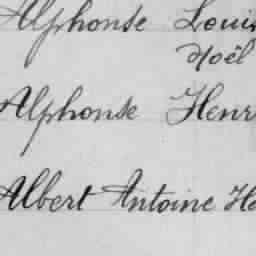 Alphonse Louis
Noël
Alphonse Henri
Albert Antoine He